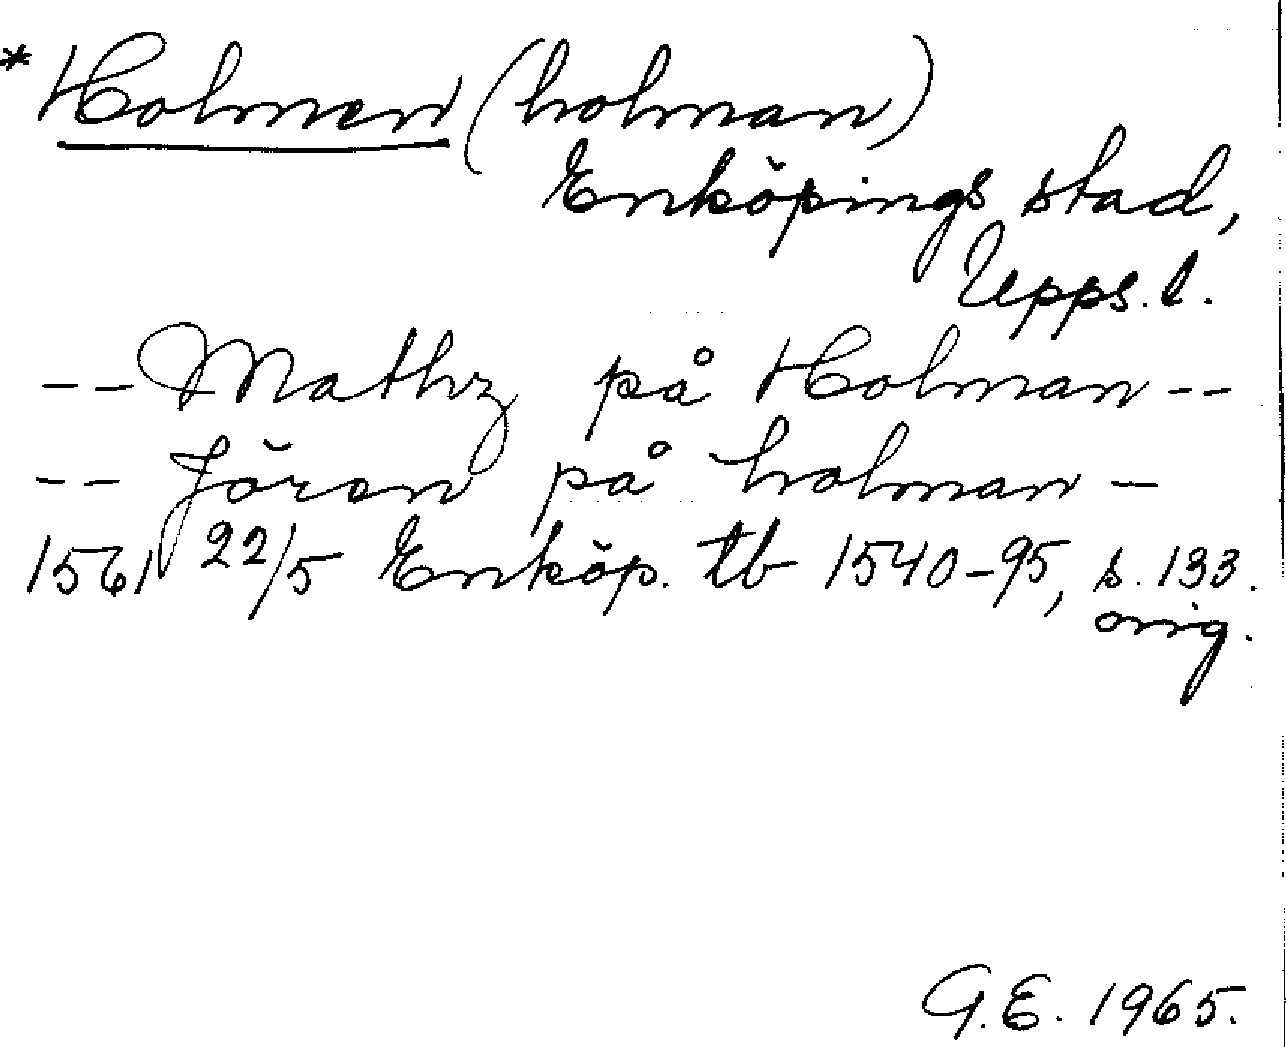 *Holmen (holman)
Enköpings stad,
Upps. l.
-- Mathz på Holman --
-- Jören på holman -
1561 22/5 Enköp. tb 1540-95, s. 133.
orig.
G.E. 1965.